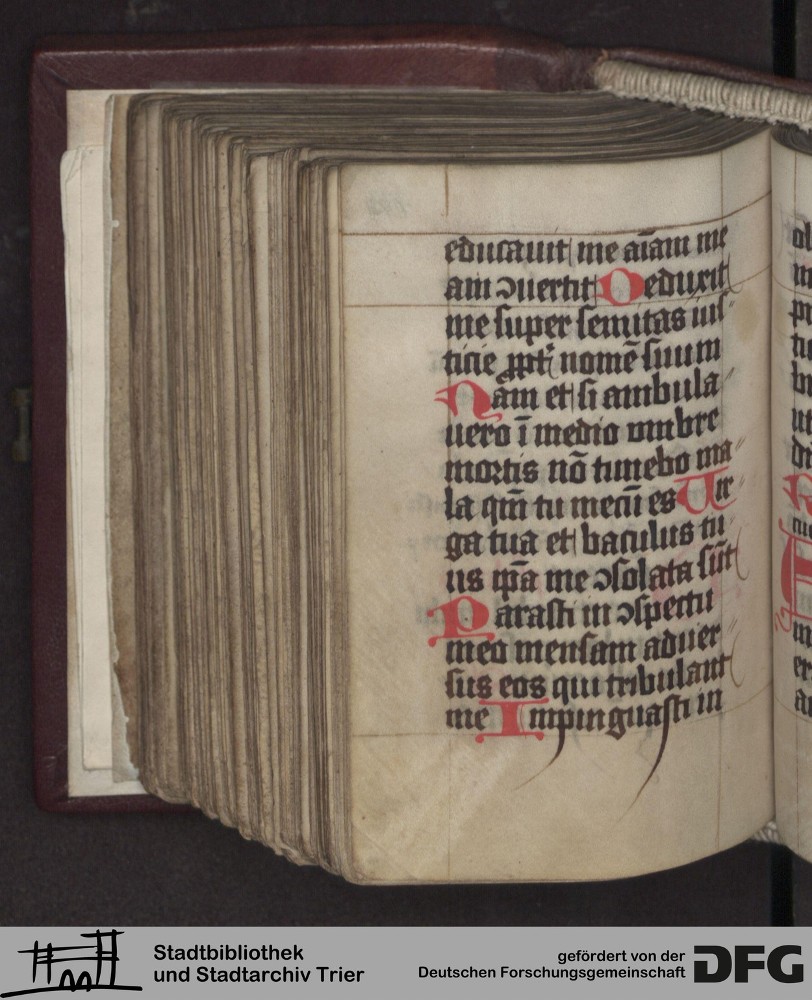 educauit me aīam me
am ɔuertit Deduxit
me super semitas ius
ticie ꝓpt̄ nomē suum
Nam et si ambula
uero ī medio vmbre
mortis nō timebo ma
la qm̄ tu mecū es Uir
ga tua et baculus tu
us ip̄a me ɔsolata sūt
Parasti in ɔspectu
meo mensam aduer
sus eos qui tribulant
me Impinguasti in
Stadtbibliothek
und Stadtarchiv Trier
gefördert von der
Deutschen Forschungsgemeinschaft
DFG